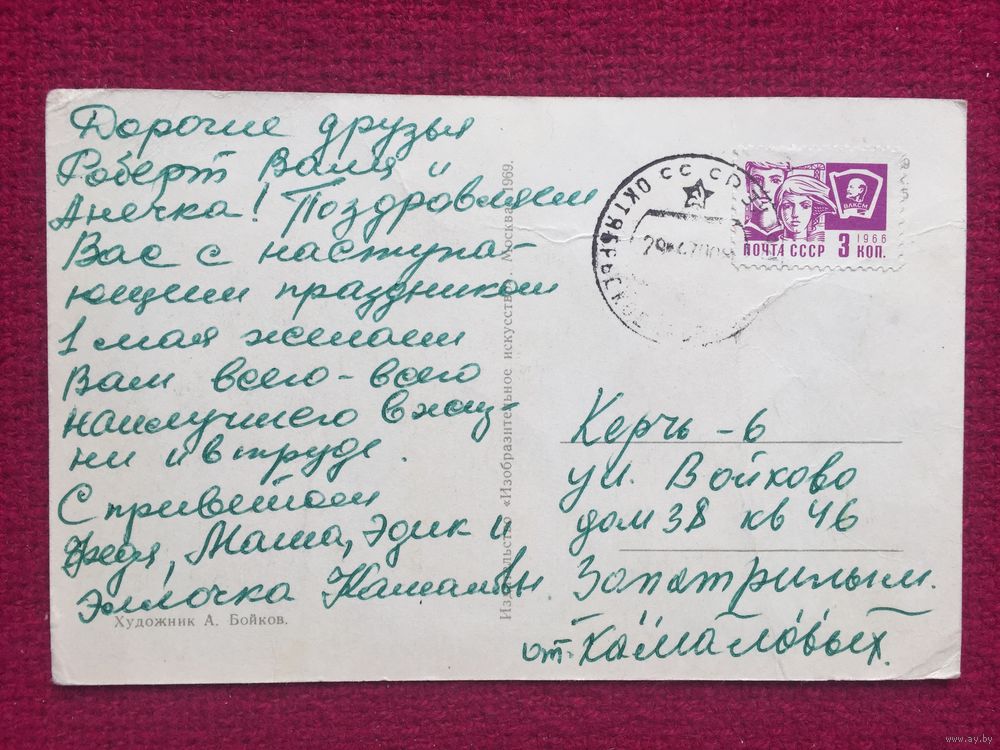 Дорогие друзья
Роберт Валя и
Анечка! Поздравляем
Вас с наступа-
ющим праздником
1 мая желаем
Вам всего-всего
наилучшего в жиз-
ни и в труде.
С приветом
Федя, Маша, Эдик и
Эллочка Камаловы.
Художник А. Бойков.
Издательство «Изобразительное искусство». Москва. 1969.
СССР
ОКТЯБРЬ
ВЛКСМ
1966
ПОЧТА СССР 3 КОП.
Керчь-6
ул. Войково
дом 38 кв 46
от Камаловых.
www.ay.by